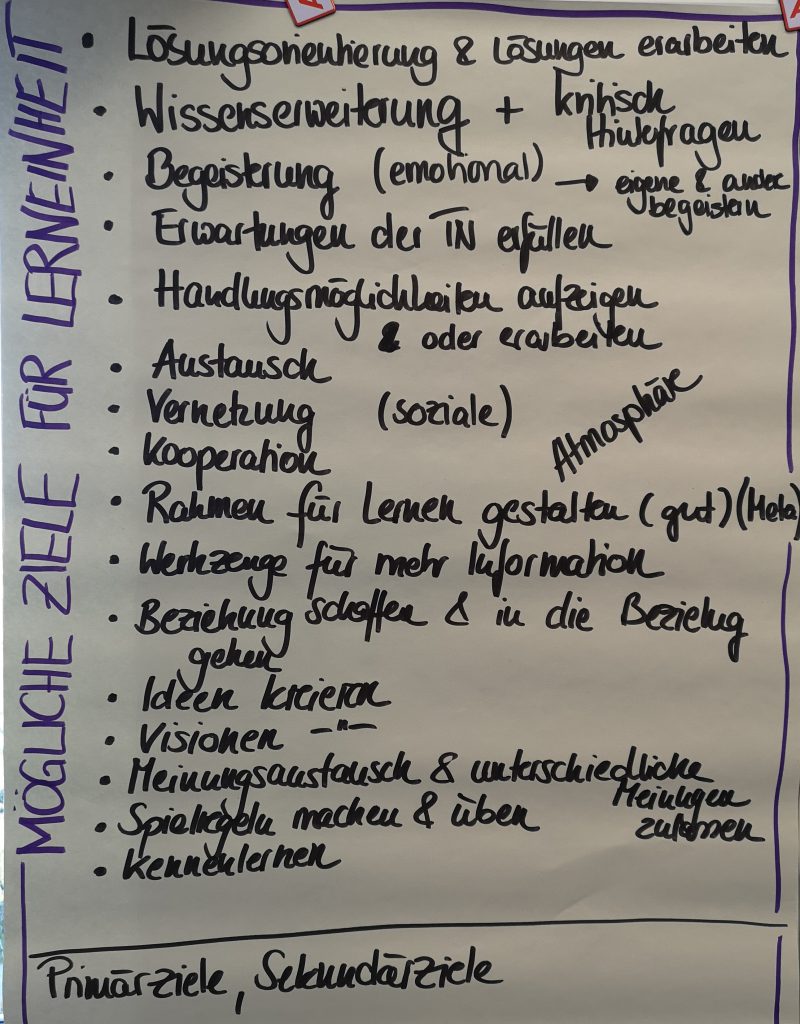 MÖGLICHE ZIELE FÜR LERNEINHEIT
• Lösungsorientierung & Lösungen erarbeiten
• Wissenserweiterung + kritisch
Hinterfragen
• Begeisterung (emotional) → eigene & andere
begeistern
• Erwartungen der TN erfüllen
• Handlungsmöglichkeiten aufzeigen
& oder erarbeiten
• Austausch
• Vernetzung (soziale)
Atmosphäre
• Kooperation
• Rahmen für Lernen gestalten (gut) (Meta)
• Werkzeuge für mehr Information
• Beziehung schaffen & in die Bezielug
gehen
• Ideen kreieren
• Visionen –"–
• Meinungsaustausch & unterschiedliche
Meinungen
zulassen
• Spielregeln machen & üben
• Kennenlernen
Primärziele, Sekundärziele